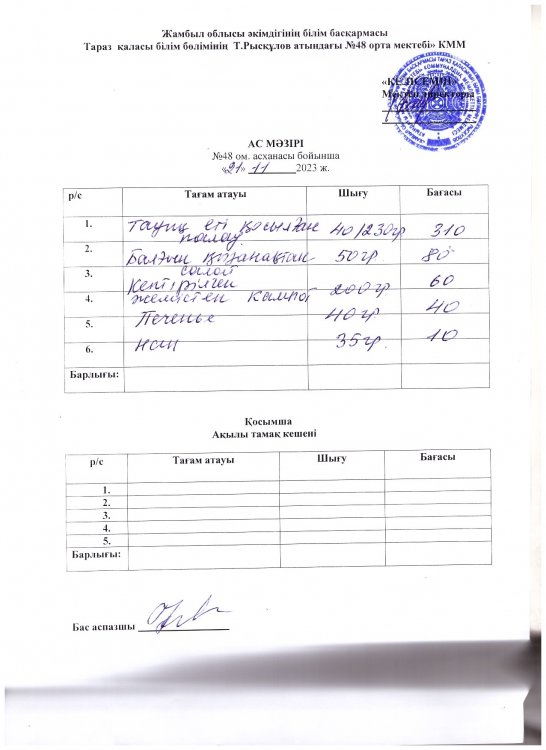 Жамбыл облысы әкімдігінің білім басқармасы
Тараз қаласы білім бөлімінің Т.Рысқұлов атындағы №48 орта мектебі» КММ
Мектеп директоры
АС МӘЗІРІ
№48 ом. асханасы бойынша
«21» 11 2023 ж.
р/с Тағам атауы Шығу Бағасы
1. Тауық еті қосылған палау 40/230гр 310
2. Балғын қызанақтан салат 50гр 80
3. Кептірілген
4. жемістен компот 200гр 60
5. Печенье 40гр 40
6. нан 35гр. 10
Барлығы:
Қосымша
Ақылы тамақ кешені
р/с Тағам атауы Шығу Бағасы
1.
2.
3.
4.
5.
Барлығы:
Бас аспазшы